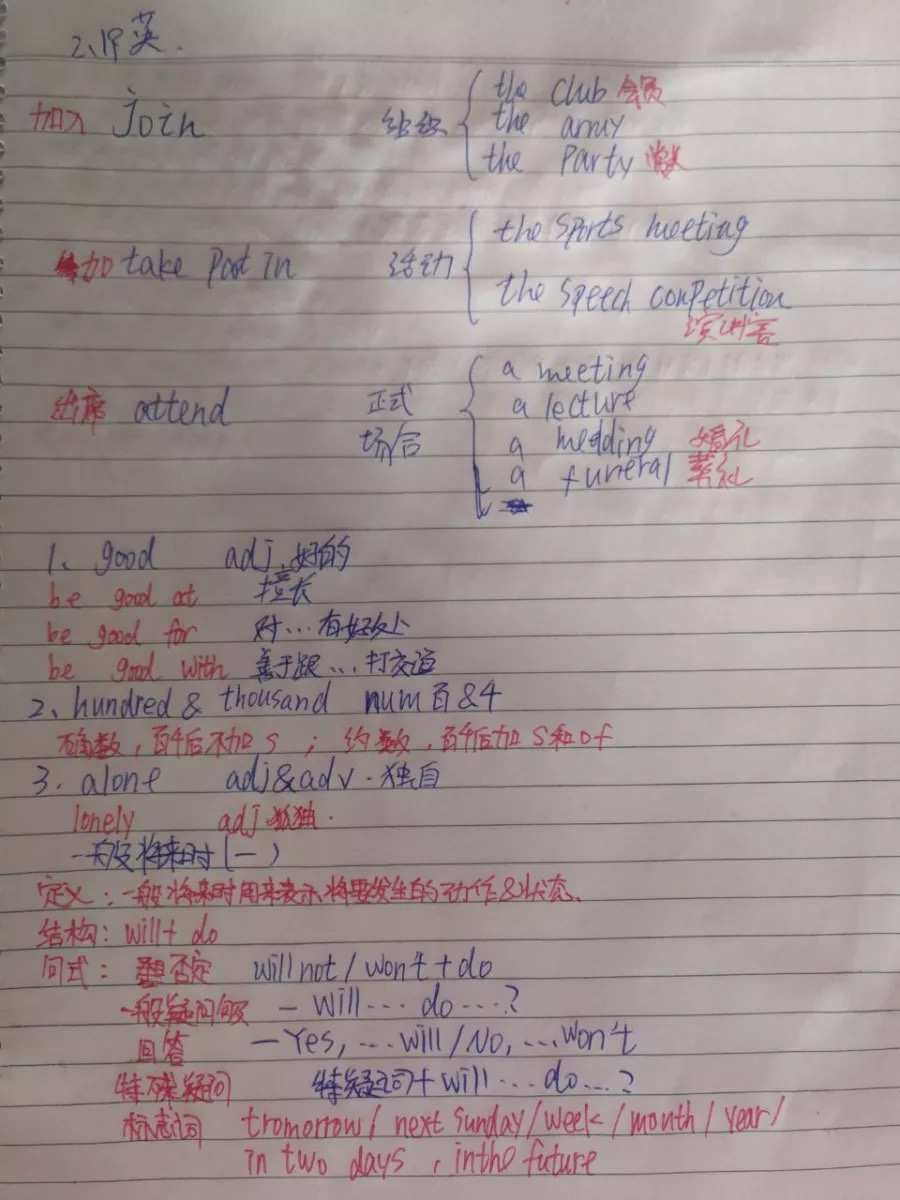 2、19 英.
the club 会员
加入 join 组织 the army
the Party 党
the sports meeting
参加 take part in 活动
the speech conpetition
演讲赛
a meeting
出席 attend 正式 a lecture
场合 a wedding 婚礼
a funeral 葬礼
1、good adj.好的
be good at 擅长
be good for 对…有好处
be good with 善于跟…打交道
2、hundred & thousand num 百&千
确数,百千后不加s ; 约数,百千后加s和of
3. alone adj&adv.独自
lonely adj.孤独.
一般将来时(一)
定义:一般将来时用来表示将要发生的动作&状态、
结构: will+ do
句式: 否定 will not / won't + do
一般疑问句 - Will … do …?
回答 - Yes, … will / No, … won't
特殊疑问 特疑词+ will … do …?
标志词 tromorrow / next sunday / week / month / year /
in two days , in the future